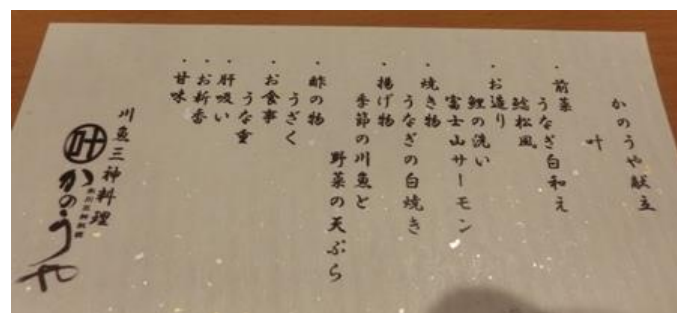 かのうや献立
叶
・前菜
うなぎ白和え
鯰松風
・お造り
鯉の洗い
富士山サーモン
・焼き物
うなぎの白焼き
・揚げ物
季節の川魚と
野菜の天ぷら
・酢の物
うざく
・お食事
うな重
・肝吸い
・お新香
・甘味
川魚三神料理
叶
かのうや